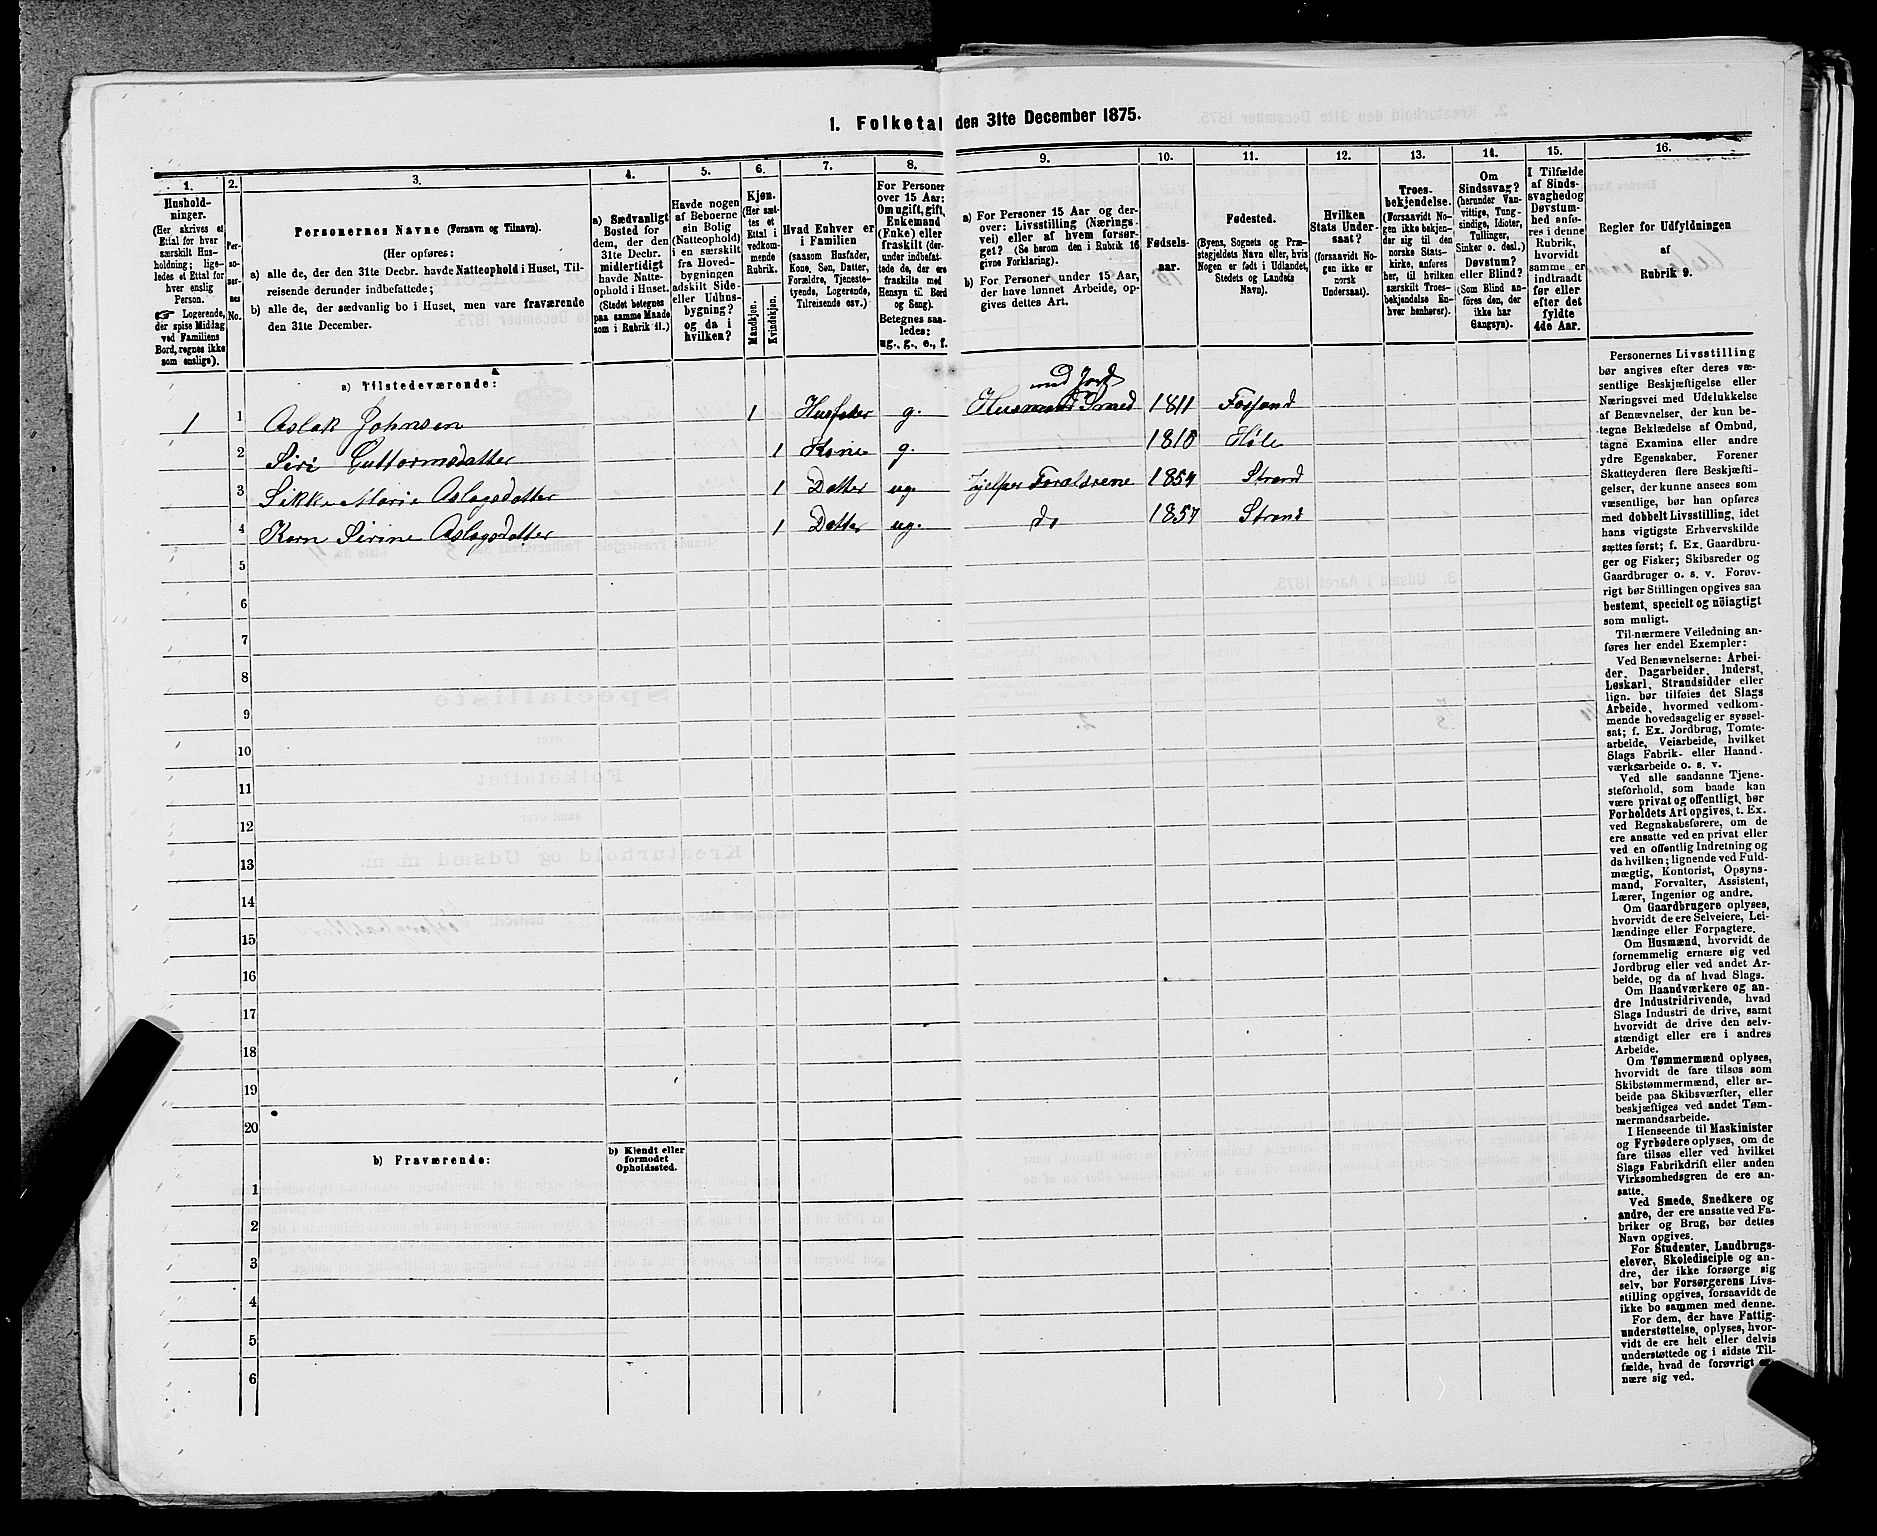 1. Folketal den 31te December 1875.
1.
2.
3.
4.
5.
6.
7.
8.
9.
10.
11.
12.
13.
14.
15.
16.
Hushold-
ninger.
(Her skrives et
Ettal for hver
særskilt Hus-
holdning; lige-
ledes et Ettal for
hver enslig
Person.
☞ Logerende,
der spise Middag
ved Familiens
Bord, regnes ikke
som enslige).
Per-
so-
ner-
nes
No.
Personernes Navne (Fornavn og Tilnavn).
(Her opføres:
a) alle de, der den 31te Decbr. havde Natteophold i Huset, Til-
reisende derunder indbefattede;
b) alle de, der sædvanlig bo i Huset, men vare fraværende
den 31te December.
a) Sædvanligt
Bosted for
dem, der den
31te Decbr.
midlertidigt
havde Natte-
ophold i Huset.
(Stedet betegnes
paa samme Maade
som i Rubrik 11.)
Havde nogen
af Beboerne
sin Bolig
(Natteophold)
i en særskilt
fra Hoved-
bygningen
adskilt Side-
eller Udhus-
bygning?
og da i
hvilken?
Kjøn.
(Her sæt-
tes et
Ettal i
vedkom-
mende
Rubrik.
Mandkjøn.
Kvindekjøn.
Hvad Enhver er
i Familien
(saasom Husfader,
Kone, Søn, Datter,
Forældre, Tjeneste-
tyende, Logerende,
Tilreisende osv.)
For Personer
over 15 Aar:
Om ugift, gift,
Enkemand
(Enke) eller
fraskilt (der-
under indbefat-
tede de, der ere
fraskilte med
Hensyn til Bord
og Seng).
Betegnes saa-
ledes:
ug., g., e., f.
a) For Personer 15 Aar og der-
over: Livsstilling (Nærings-
vei) eller af hvem forsør-
get? (Se herom den i Rubrik 16
givne Forklaring).
b) For Personer under 15 Aar,
der have lønnet Arbeide, op-
gives dettes Art.
Fødsels-
aar.
Fødested.
(Byens, Sognets og Præ-
stegjeldets Navn eller, hvis
Nogen er født i Udlandet,
Stedets og Landets
Navn).
Hvilken
Stats Under-
saat?
(forsaavidt No-
gen ikke er
norsk
Undersaat).
Troes-
bekjendelse.
(Forsaavidt No-
gen ikke bekjen-
der sig til den
norske Stats-
kirke, anføres
her, til hvilken
særskilt Troes-
bekjendelse En-
hver henhører).
Om
Sindssvag?
(herunder Van-
vittige, Tung-
sindige, Idioter,
Tullinger,
Sinker o. desl.)
Døvstum?
eller Blind?
(Som Blind an-
føres den, der
ikke har
Gangsyn).
I Tilfælde
af Sinds-
svaghed og
Døvstum-
hed anfø-
res i denne
Rubrik,
hvorvidt
samme er
indtraadt
før eller
efter det
fyldte
4de Aar.
Regler for Udfyldningen
af
Rubrik 9.
a) Tilstedeværende:
med Jord
1 1 Aslak Johnsen 1 Husfader g. Husmand Smed 1811 Fossand
2 Siri Guttormsdatter 1 Kone g. 1818 Høle
3 Sikke Marie Aslagsdatter 1 Datter ug. hjelper Forældrene 1854 Strand
4 Karn Sirine Aslagsdatter 1 Datter ug. do 1857 Strand
5
6
7
8
9
10
11
12
13
14
15
16
17
18
19
20
b) Fraværende:
b) Kjendt eller
formodet
Opholdssted.
1
2
3
4
5
6
Personernes Livsstilling
bør angives efter deres væ-
sentlige Beskjæftigelse eller
Næringsvei med Udelukkelse
af Benævnelser, der kun be-
tegne Beklædelse af Ombud,
tagne Examina eller andre
ydre Egenskaber. Forener
Skatteyderen flere Beskjæfti-
gelser, der kunne ansees som
væsentlige, bør han opføres
med dobbelt Livsstilling, idet
hans vigtigste Erhvervskilde
sættes først; f. Ex. Gaardbru-
ger og Fisker; Skibsreder og
Gaardbruger o. s. v. Forøv-
rigt bør Stillingen opgives saa
bestemt, specielt og nöiagtigt
som muligt.
Til nærmere Veiledning an-
føres her endel Exempler:
Ved Benævnelserne: Arbei-
der, Dagarbeider, Inderst,
Løskarl, Strandsidder eller
lign. bør tilføies det Slags
Arbeide, hvormed vedkom-
mende hovedsagelig er syssel-
sat; f. Ex. Jordbrug, Tomte-
arbeide, Veiarbeide, hvilket
Slags Fabrik- eller Haand-
værksarbeide o. s. v.
Ved alle saadanne Tjene-
steforhold, som baade kan
være privat og offentligt, bør
Forholdets Art opgives, t. Ex.
ved Regnskabsførere, om de
ere ansatte ved en privat eller
ved en offentlig Indretning og
da hvilken; lignende ved Fuld-
mægtig, Kontorist, Opsyns-
mand, Forvalter, Assistent,
Lærer, Ingeniør og andre.
Om Gaardbrugere oplyses,
hvorvidt de ere Selveiere, Lei-
lændinge eller Forpagtere.
Om Husmænd, hvorvidt de
fornemmelig ernære sig ved
Jordbrug eller ved andet Ar-
beide, og da af hvad Slags.
Om Haandværkere og an-
dre Industridrivende, hvad
Slags Industri de drive, samt
hvorvidt de drive den selv-
stændigt eller ere i andres
Arbeide.
Om Tømmermænd oplyses,
hvorvidt de fare tilsøs som
Skibstømmermænd, eller ar-
beide paa Skibsværfter, eller
beskjæftiges ved andet Tøm-
mermandsarbeide.
I Henseende til Maskinister
og Fyrbødere oplyses, om de
fare tilsøs eller ved hvilket
Slags Fabrikdrift eller anden
Virksomhedsgren de ere an-
satte.
Ved Smede, Snedkere og
andre, der ere ansatte ved Fa-
briker og Brug, bør dettes
Navn opgives.
For Studenter, Landbrugs-
elever, Skoledisciple og an-
dre, der ikke forsørge sig
selv, bør Forsørgerens Livs-
stilling opgives, forsaavidt de
ikke bo sammen med denne.
For dem, der have Fattig-
understøttelse, oplyses, hvor-
vidt de ere helt eller delvis
understøttede og i sidste Til-
fælde, hvad de forøvrigt er-
nære sig ved.